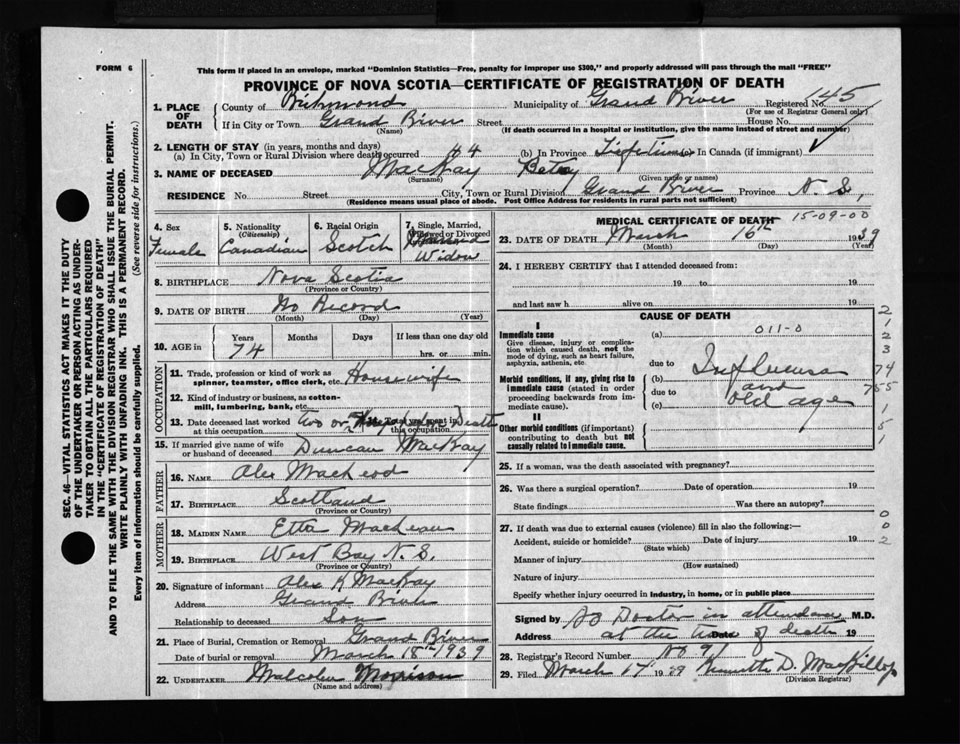 FORM 6
This form if placed in an envelope, marked "Dominion Statistics—Free, penalty for improper use $300," and properly addressed will pass through the mail "FREE"
PROVINCE OF NOVA SCOTIA—CERTIFICATE OF REGISTRATION OF DEATH
SEC. 46—VITAL STATISTICS ACT MAKES IT THE DUTY
OF THE UNDERTAKER OR PERSON ACTING AS UNDER-
TAKER TO OBTAIN ALL THE PARTICULARS REQUIRED
IN THE "CERTIFICATE OF REGISTRATION OF DEATH"
AND TO FILE THE SAME WITH THE DIVISION REGISTRAR WHO SHALL ISSUE THE BURIAL PERMIT.
WRITE PLAINLY WITH UNFADING INK. THIS IS A PERMANENT RECORD.
Every item of information should be carefully supplied. (See reverse side for instructions.)
1. PLACE OF DEATH County of Richmond Municipality of Grand River Registered No. 145
(For use of Registrar General only)
If in City or Town Grand River Street House No.
(Name) (If death occurred in a hospital or institution, give the name instead of street and number)
2. LENGTH OF STAY (in years, months and days)
(a) In City, Town or Rural Division where death occurred 44 (b) In Province Lifetime In Canada (if immigrant)
3. NAME OF DECEASED MacKay Betsy
(Surname) (Given name or names)
RESIDENCE No. Street City, Town or Rural Division Grand River Province N. S.
(Residence means usual place of abode. Post Office Address for residents in rural parts not sufficient)
4. Sex Female
5. Nationality (Citizenship) Canadian
6. Racial Origin Scotch
7. Single, Married, Widowed or Divorced Widow
8. BIRTHPLACE Nova Scotia
(Province or Country)
9. DATE OF BIRTH No Record
(Month) (Day) (Year)
10. AGE in Years Months Days If less than one day old
74 hrs. or min.
OCCUPATION
11. Trade, profession or kind of work as spinner, teamster, office clerk, etc. Housewife
12. Kind of industry or business, as cotton-mill, lumbering, bank, etc.
13. Date deceased last worked at this occupation two or Death
15. If married give name of wife or husband of deceased Duncan MacKay
FATHER
16. NAME Alex MacLeod
17. BIRTHPLACE Scotland
(Province or Country)
MOTHER
18. MAIDEN NAME Etta MacLean
19. BIRTHPLACE West Bay N. S.
(Province or Country)
20. Signature of informant Alex K MacKay
Address Grand River
Relationship to deceased Son
21. Place of Burial, Cremation or Removal Grand River
Date of burial or removal March 18th 1939
22. UNDERTAKER Malcolm Morrison
(Name and address)
MEDICAL CERTIFICATE OF DEATH 15-09-00
23. DATE OF DEATH March 16th 1939
(Month) (Day) (Year)
24. I HEREBY CERTIFY that I attended deceased from:
19 to 19
and last saw h alive on 19
CAUSE OF DEATH
I
Immediate cause
Give disease, injury or complication which caused death, not the mode of dying, such as heart failure, asphyxia, asthenia, etc.
(a) 011-0
due to Influenza
Morbid conditions, if any, giving rise to immediate cause (stated in order proceeding backwards from immediate cause).
(b) and
due to
(c) old age
II
Other morbid conditions (if important) contributing to death but not causally related to immediate cause.
2
1
2
3
74
755
1
5
1
25. If a woman, was the death associated with pregnancy?
26. Was there a surgical operation? Date of operation 19
State findings Was there an autopsy?
27. If death was due to external causes (violence) fill in also the following:—
Accident, suicide or homicide? Date of injury 19
(State which)
Manner of injury
(How sustained)
Nature of injury
Specify whether injury occurred in industry, in home, or in public place
0
0
2
Signed by No Doctor in attendance M.D.
Address at the time of death Date 19
28. Registrar's Record Number No 91
29. Filed March 17 1939 Kenneth D. MacKillop
(Division Registrar)